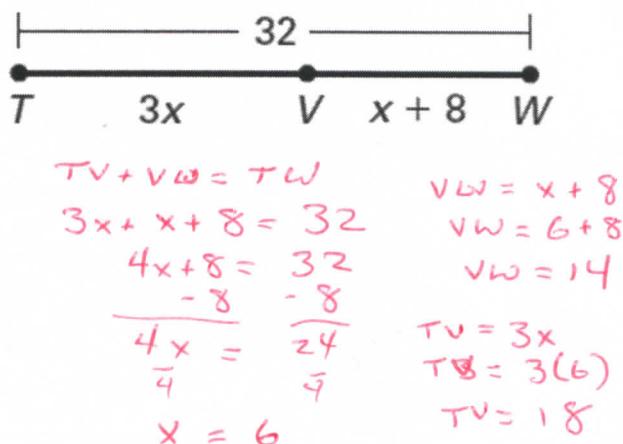 32
T 3x V x + 8 W
TV + VW = TW
3x + x + 8 = 32
4x + 8 = 32
- 8 - 8
4x = 24
4 4
x = 6
VW = x + 8
VW = 6 + 8
VW = 14
TV = 3x
TV = 3(6)
TV = 18